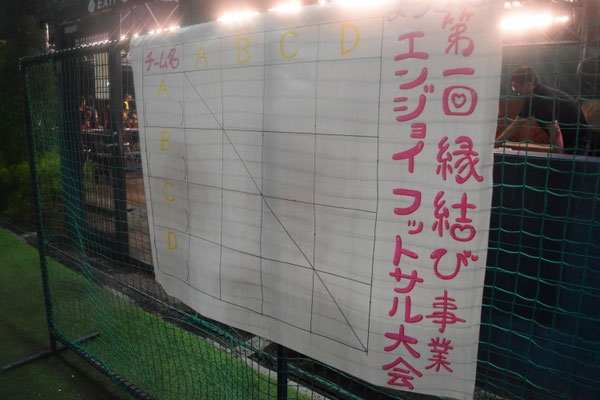 第一回 縁結び事業
エンジョイ フットサル大会
チーム名 A B C D
A
B
C
D
EXIT